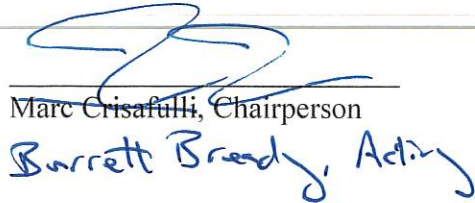 Marc Crisafulli, Chairperson
Barrett Bready, Acting